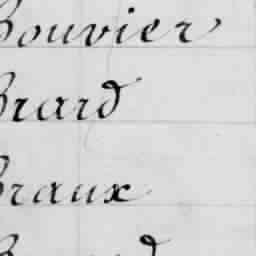 Bouvier
Brard
Braux